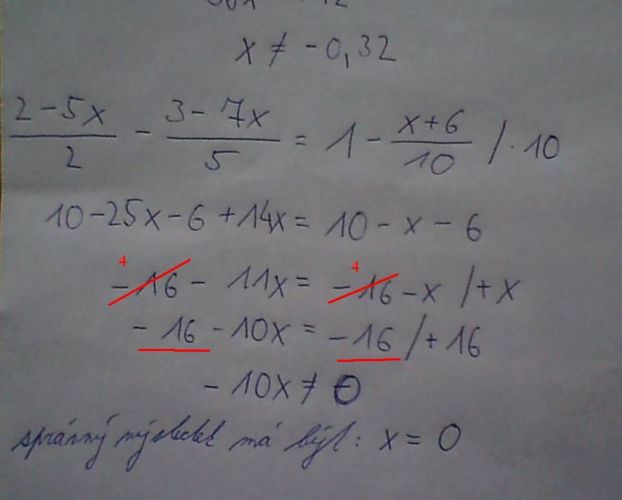 x ≠ -0,32
(2-5x)/2 - (3-7x)/5 = 1 - (x+6)/10 / · 10
10-25x-6+14x = 10-x-6
4 4
-16 - 11x = -16 -x /+x
-16 -10x = -16 /+16
-10x ≠ 0
správný výsledek má být: x = 0